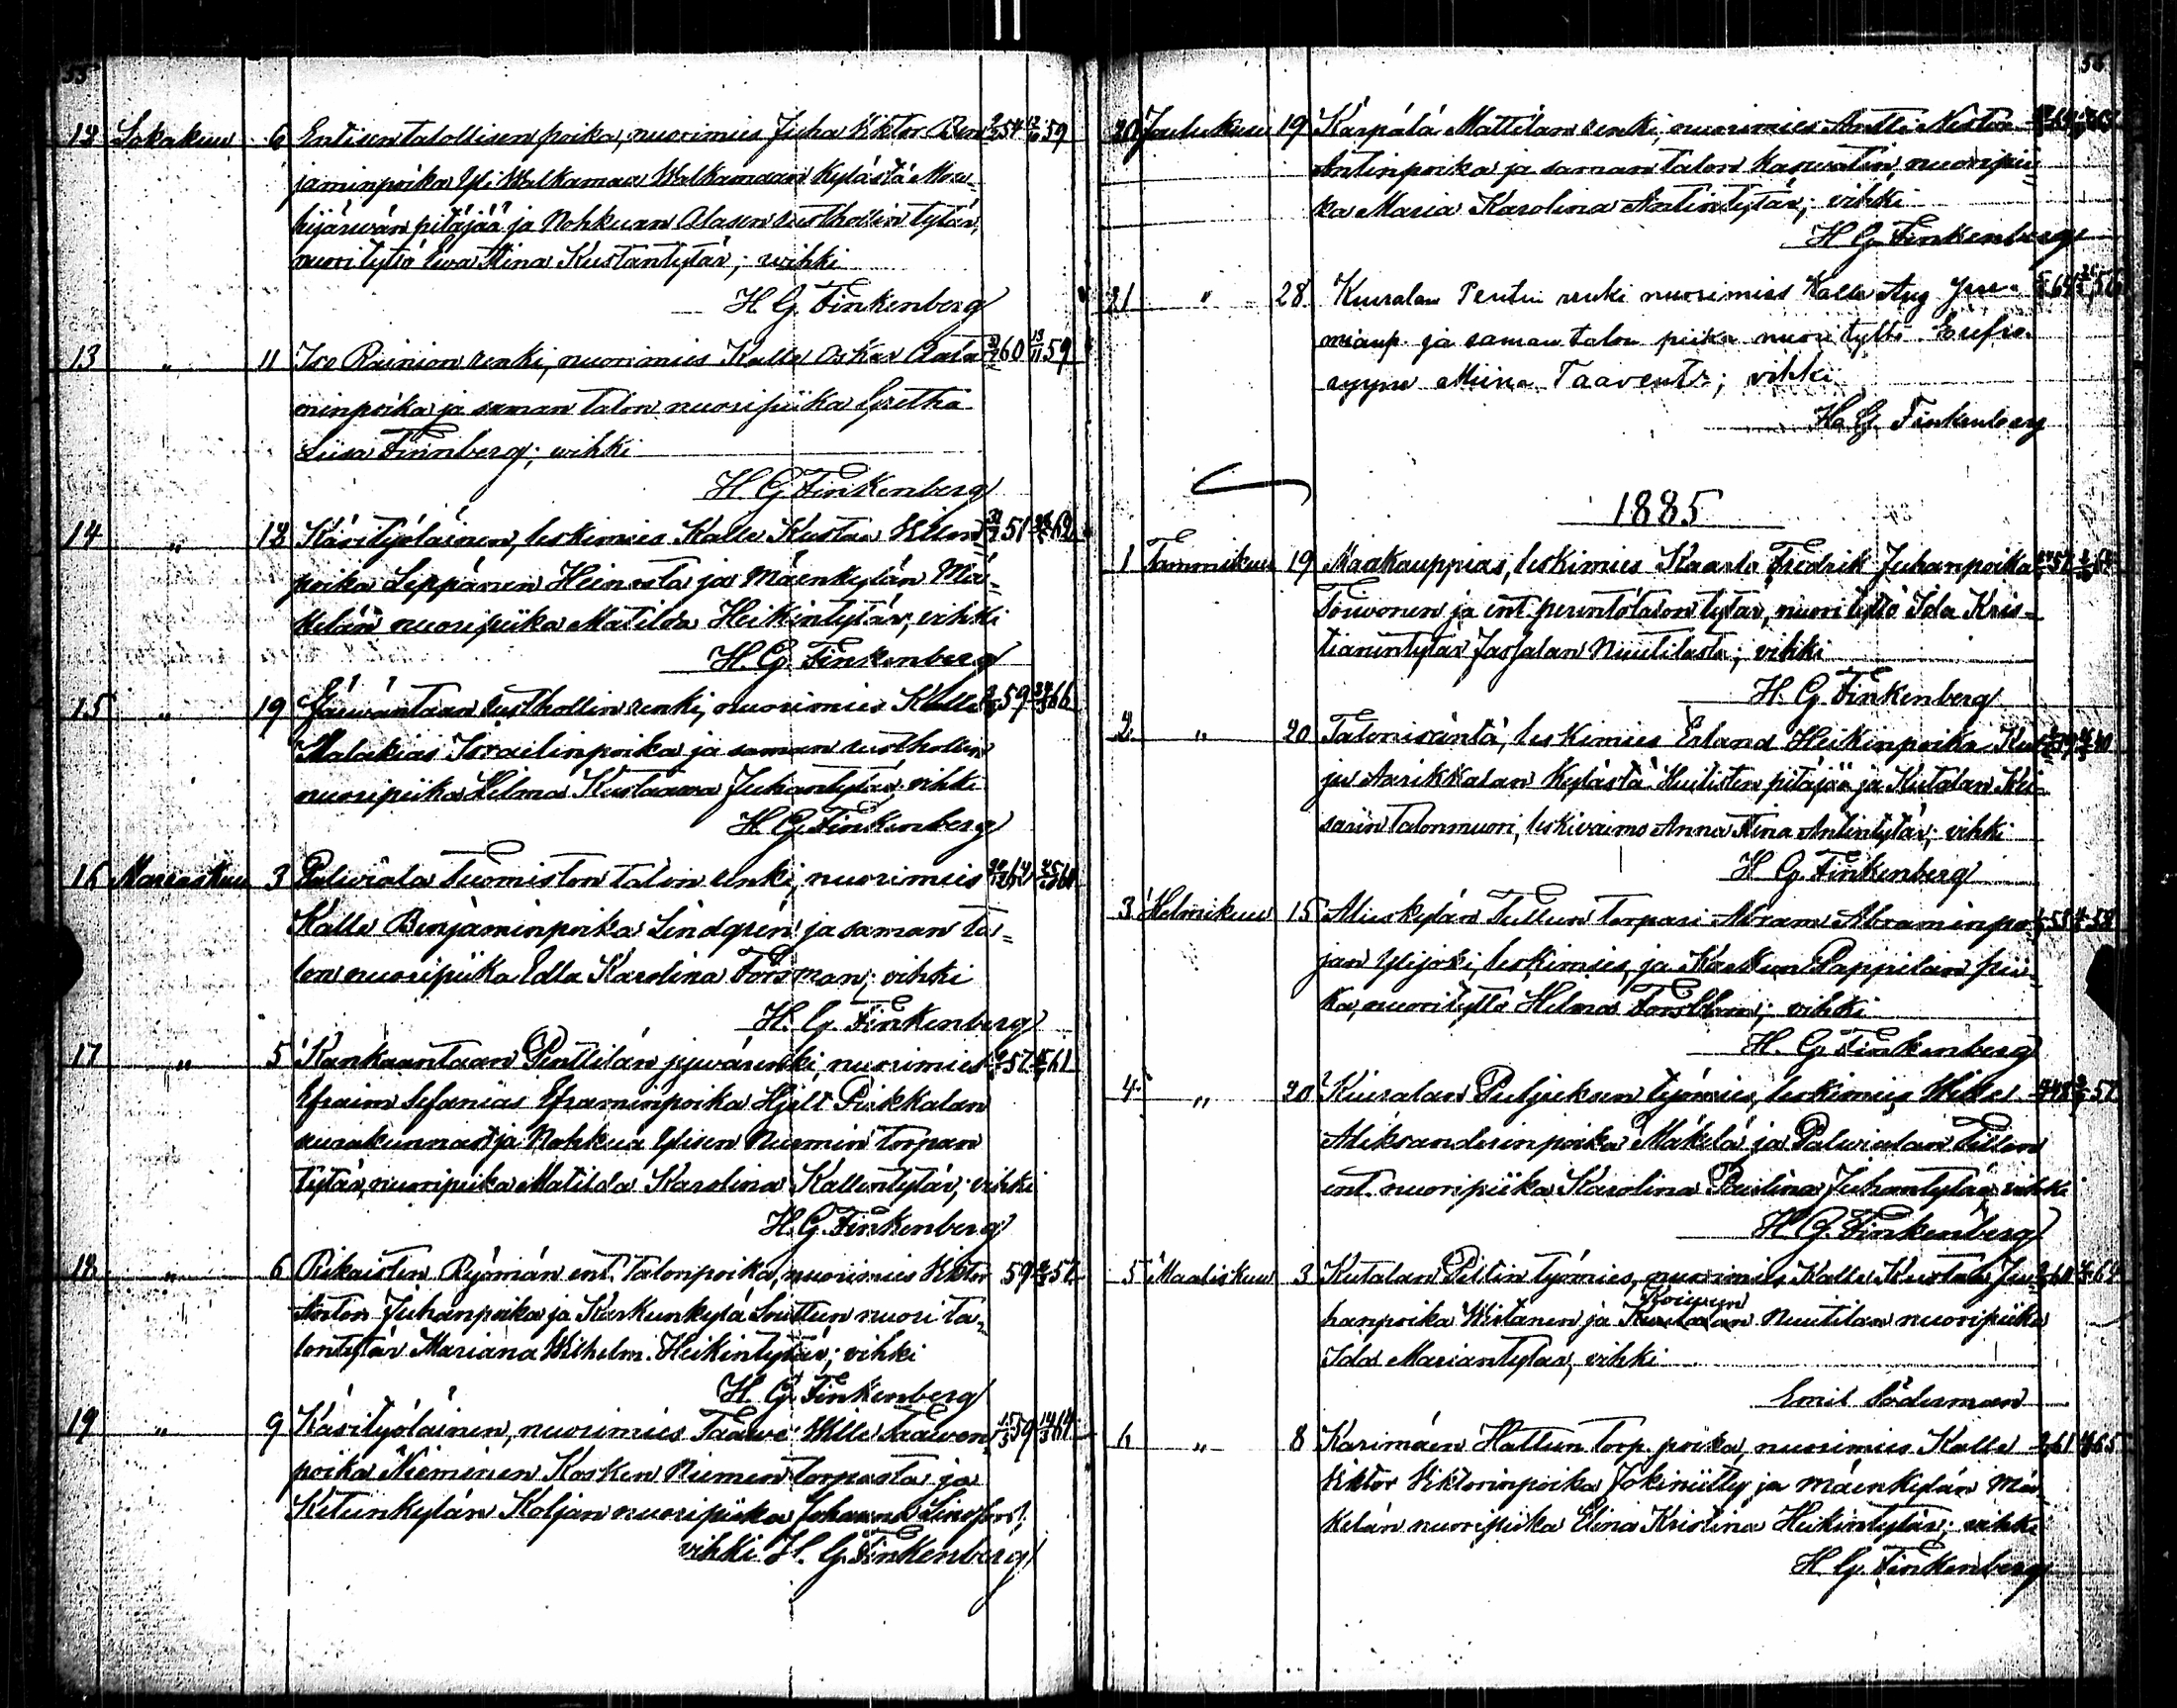 12 Lokakuu 6 Entisen talollisen poika, nuorimies Juha Viktor Ben 54 59
jaminpoika Yli Walkamaa Walkamaan Kylästä Mou-
hijärwän pitäjää ja Nohkuan Alasen rusthollin tytär,
nuori tyttö Ewa Stina Kustantytär; wihki
H. G. Finkenberg
13 " 11 Iso Rainion renki, nuorimies Kalle Oskar Aata 60 59
minpoika ja saman talon nuoripiika Gretha
Liisa Finnberg; wihki
H. G. Finkenberg
14 " 12 Käsityöläinen, leskimies Kalle Kustaa 51 62
poika Leppänen Heinosta ja Mäenkylän Mä-
kelän nuoripiika Matilda Heikintytär, vihki
H. G. Finkenberg
15 " 19 Järwäntaan rusthollin renki, nuorimies Kalle 59 66
Malakias Israelinpoika ja saman rusthollin
nuoripiika Hilma Kustaawa Juhantytär, vihki
H. G. Finkenberg
16 Marraskuu 3 Palwiala Tuomiston talon renki, nuorimies 64
Kalle Benjaminpoika Lindgrén ja saman ta-
lon nuoripiika Edla Karolina Forsman; vihki
H. G. Finkenberg
17 " 5 Kankaantaan Penttilän jywärenki, nuorimies 57 61
Efraim Sefanias Eframinpoika Hjelt Pirkkalan
seurakunnast ja Nohkua Ylisen Nurmin torpan
tytär, nuoripiika Matilda Karolina Kallentytär; vihki
H. G. Finkenberg
18 " 6 Rikaisten Ryömän ent. Talonpoika, nuorimies Viktor 59 57
Anton Juhanpoika ja Karkunkylä Souttun nuori ta-
lontytär Mariana Wilhelm. Heikintytär; vihki
H. G. Finkenberg
19 " 9 Käsityöläinen, nuorimies Taawe Wille Taawen 59 64
poika Nieminen Kosken Niemen torpasta ja
Ketunkylän Koljan nuoripiika
vihki H. G. Finkenberg
20 Joulukuu 19 Kärpälä Mattilan renki, nuorimies Antti Nestor
Antinpoika ja saman talon kaswatin, nuoripii-
ka Maria Karolina Antintytär; vihki
H. G. Finkenberg
21 " 28 Kuuralan Pentin renki nuorimies Kalle Aug 64 56
ja saman talon piika nuori tyttö Eufro-
syyne Miina Taavent.; vihki
H. G. Finkenberg
1885
1 Tammikuu 19 Maakauppias, leskimies Kaarlo Fredrik Juhanpoika 57
Toiwonen ja ent. perintötalon tytär, nuori tyttö Ida Kris-
tianintytär Nuutilasta; vihki
H. G. Finkenberg
2 " 20 Talonisäntä, leskimies Erland Heikinpoika 40
Kylästä Huitisten pitäjää ja Kutalan Kei-
sarin talonmuori, leskivaimo Anna Stina Antintytär; vihki
H. G. Finkenberg
3 Helmikuu 15 Aluskylän Tullun Torpari Abram Abraminpo 58 58
jan Ylijoki, leskimies, ja Karkun Pappilan pii-
ka, nuorityttö Helma Forsblom; vihki
H. G. Finkenberg
4 " 20 Kiuralan Puljuksen työmies, leskimies 48 57
Aleksanderinpoika Mäkelä ja Palwialan
ent. nuoripiika Karolina Paulina Juhantytär vihki
H. G. Finkenberg
5 Maaliskuu 3 Kutalan työmies, nuorimies Kalle Kustaa Ju 60 64
hanpoika Wirtanen ja Nuutilan nuoripiika
Ida Mariantytär, vihki
Emil Söderman
6 " 8 Karimäen Hattun torp. poika, nuorimies Kalle 61 65
Viktor Viktorinpoika Jokiniitty ja Mäenkylän Mä-
kelän nuoripiika Elina Kristina Heikintytär; vihki
H. G. Finkenberg